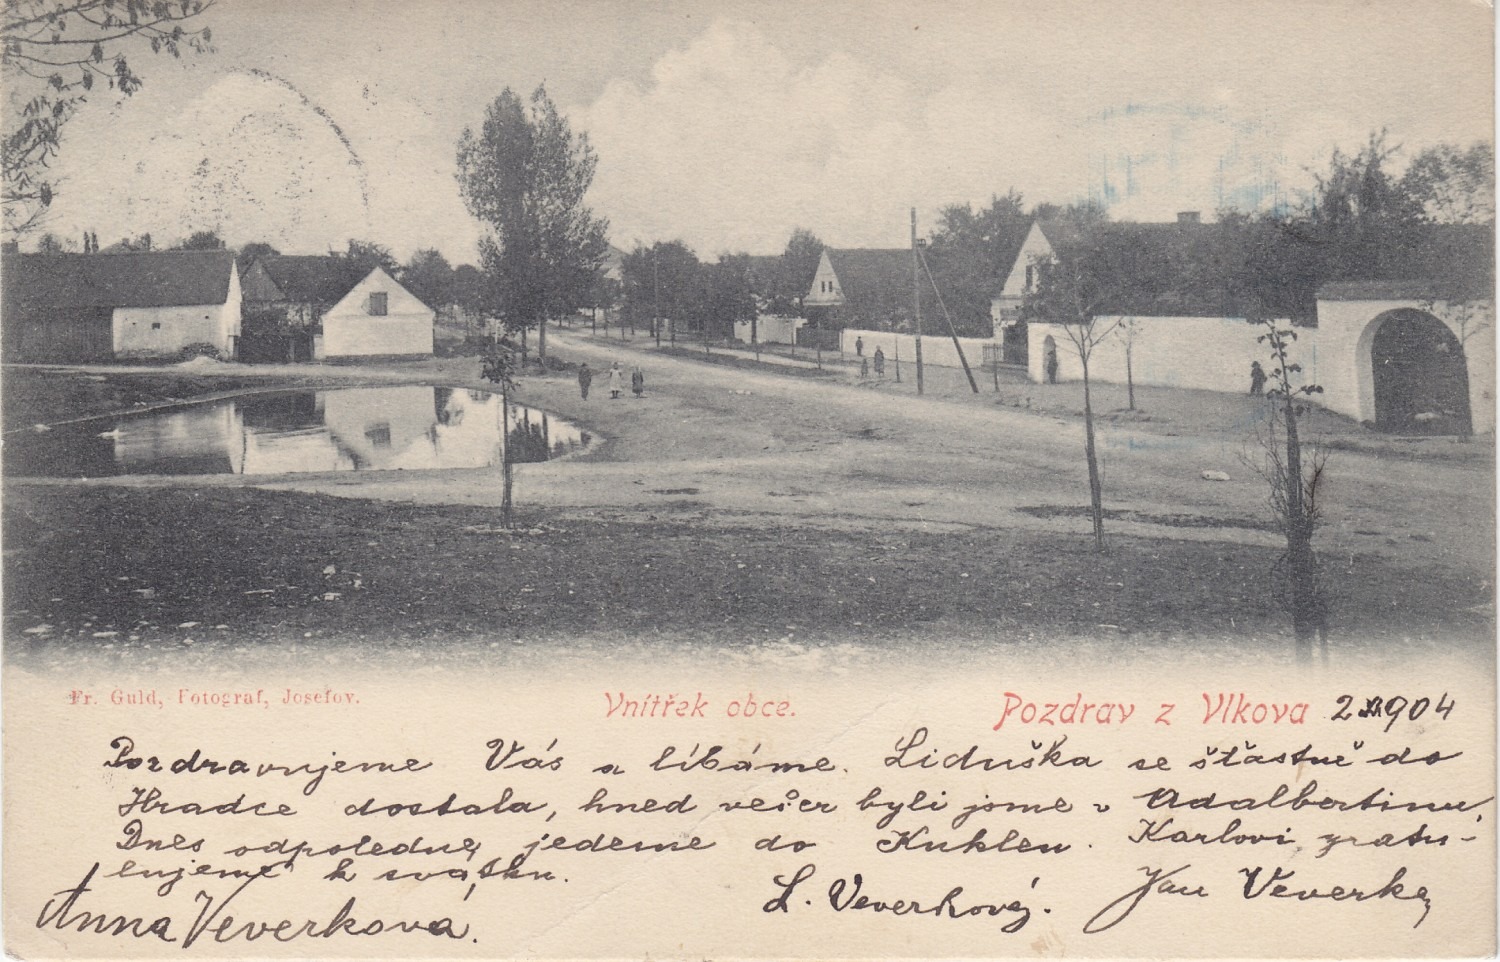 Fr. Guld, Fotograf, Josefov.
Vnítřek obce.
Pozdrav z Vlkova 2 XI 904
Pozdravujeme Vás a líbáme. Liduška se šťastně do
Hradce dostala, hned večer byli jsme v Adalbertinu,
Dnes odpoledne jedeme do Kuklen. Karlovi gratu-
lujeme k svátku.
L. Veverková.
Jan Veverka
Anna Veverková.